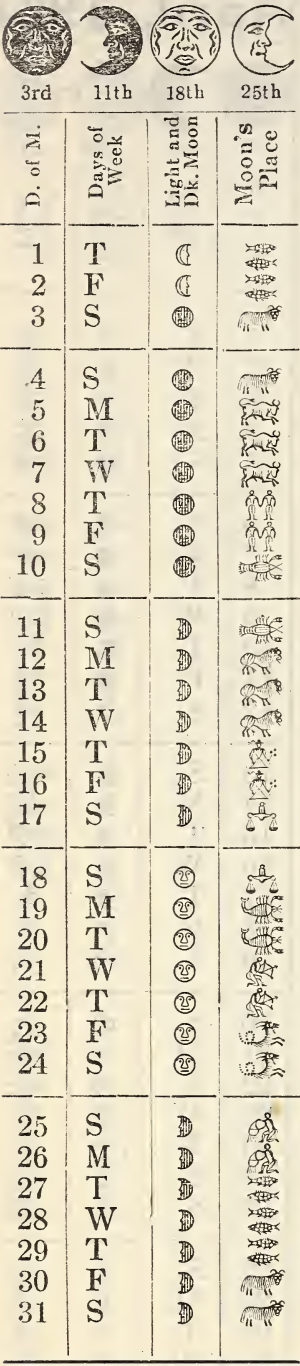 3rd 11th 18th 25th
D. of M. Days of Week Light and Dk. Moon Moon's Place
1 T
2 F
3 S
4 S
5 M
6 T
7 W
8 T
9 F
10 S
11 S
12 M
13 T
14 W
15 T
16 F
17 S
18 S
19 M
20 T
21 W
22 T
23 F
24 S
25 S
26 M
27 T
28 W
29 T
30 F
31 S